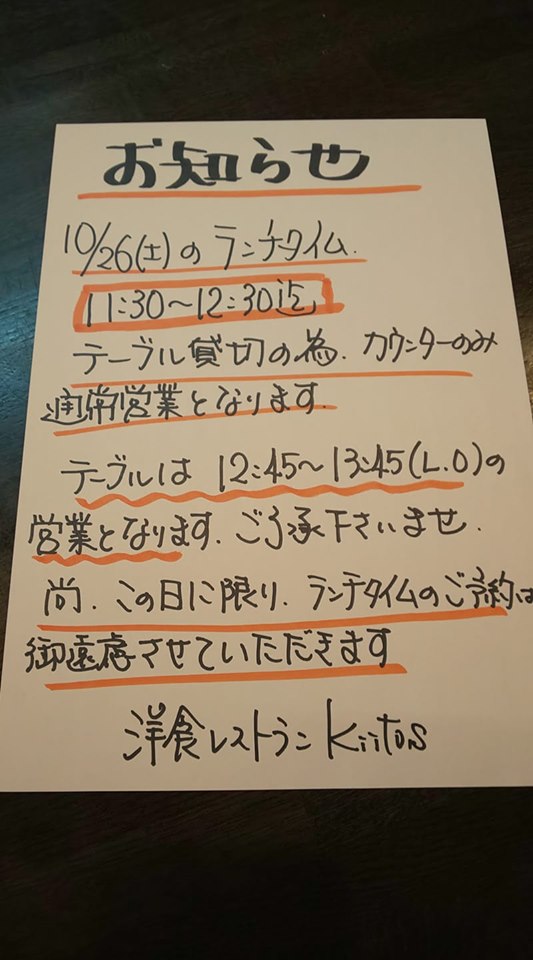 お知らせ
10/26(土)の ランチタイム.
11:30〜12:30迄
テーブル貸切の為、カウンターのみ
通常営業となります.
テーブルは 12:45〜13:45(L.O)の
営業となります. ご了承下さいませ.
尚、この日に限り、ランチタイムのご予約は
御遠慮させていただきます
洋食レストラン Kiitos